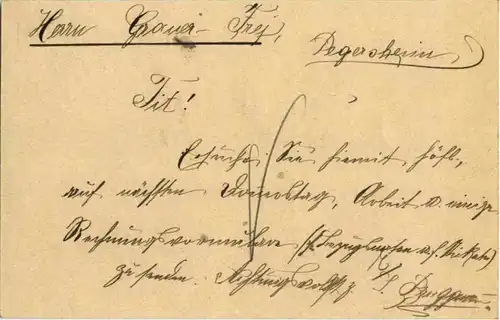 Herrn Grauer-Frej,
Degersheim
Tit!
Ersuche Sie hiemit höfl.,
auf nächsten Donnerstag, Arbeit u. einige
Rechnungsformulare
zu senden. Achtungsvollst z.